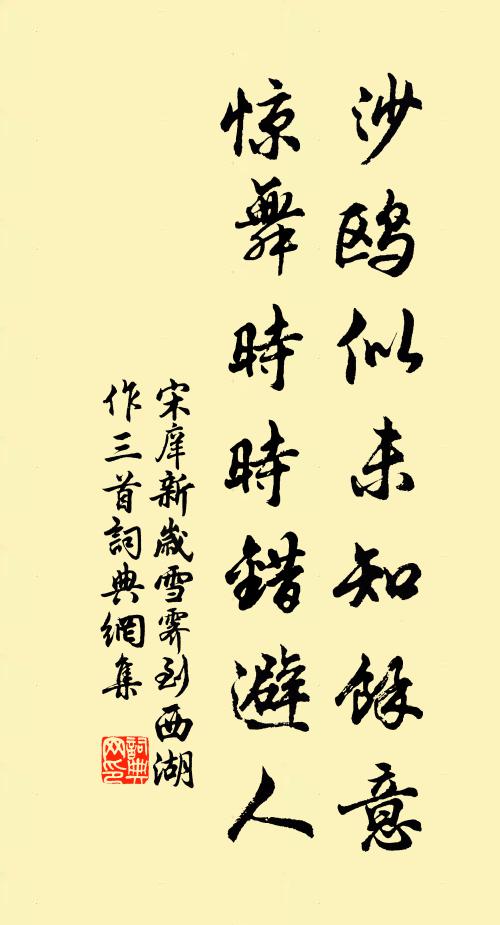 沙鸥似未知餘意
惊舞時時錯避人
宋庠新歲雪霽到西湖
作三首詞典網集
詞典
网印